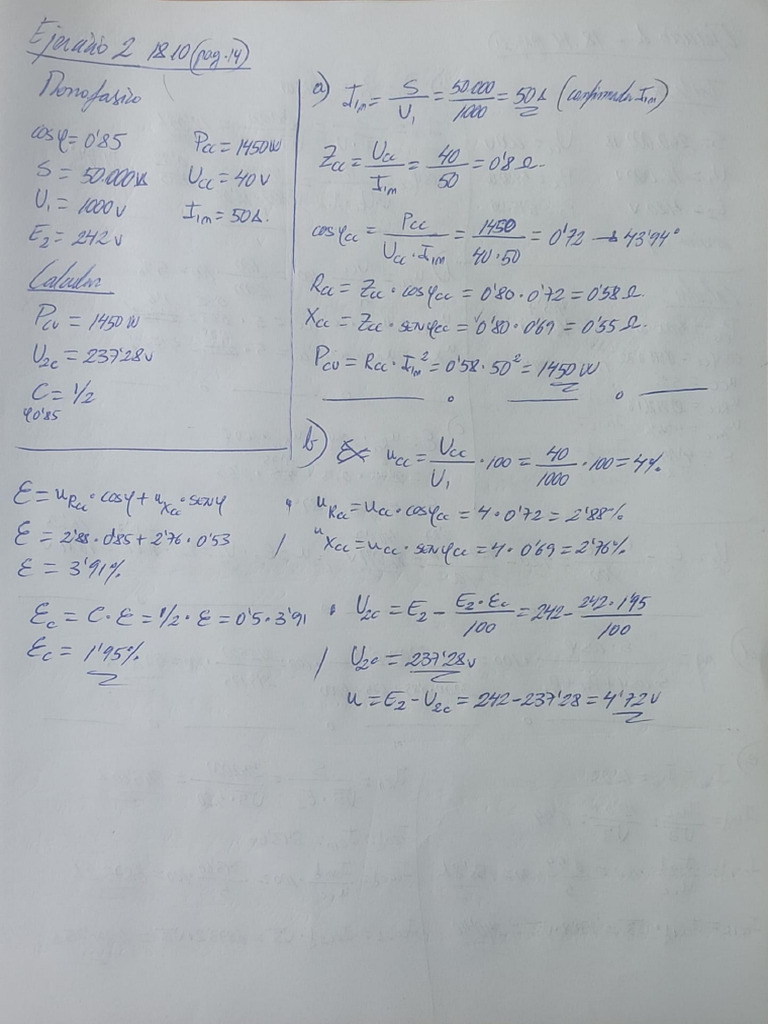 Ejercicio 2 18.10 (pag.14)
Monofasico
cosφ = 0'85
S = 50.000VA
U₁ = 1000 V
E₂ = 242 V
Pcc = 1450W
Ucc = 40 V
I₁m = 50A.
Calcular
Pcu = 1450 W
U₂c = 237'28V
C = 1/2
φ0'85
a) I₁m = S/U₁ = 50.000/1000 = 50 A (confirmada I₁m)
Zcc = Ucc/I₁m = 40/50 = 0'8 Ω.
cosφcc = Pcc/(Ucc · I₁m) = 1450/(40·50) = 0'72 → 43'94°
Rcc = Zcc · cosφcc = 0'80 · 0'72 = 0'58 Ω.
Xcc = Zcc · senφcc = 0'80 · 0'69 = 0'55 Ω.
Pcu = Rcc · I₁m² = 0'58 · 50² = 1450 W
b) ucc = Ucc/U₁ · 100 = 40/1000 · 100 = 4%
uRcc = ucc · cosφcc = 4 · 0'72 = 2'88%
uXcc = ucc · senφcc = 4 · 0'69 = 2'76%
Ɛ = uRcc · cosφ + uXcc · senφ
Ɛ = 2'88 · 0'85 + 2'76 · 0'53
Ɛ = 3'91%
Ɛc = C · Ɛ = 1/2 · Ɛ = 0'5 · 3'91
Ɛc = 1'95%
U₂c = E₂ - E₂·Ɛc/100 = 242 - 242·1'95/100
U₂c = 237'28V
u = E₂ - U₂c = 242 - 237'28 = 4'72 V